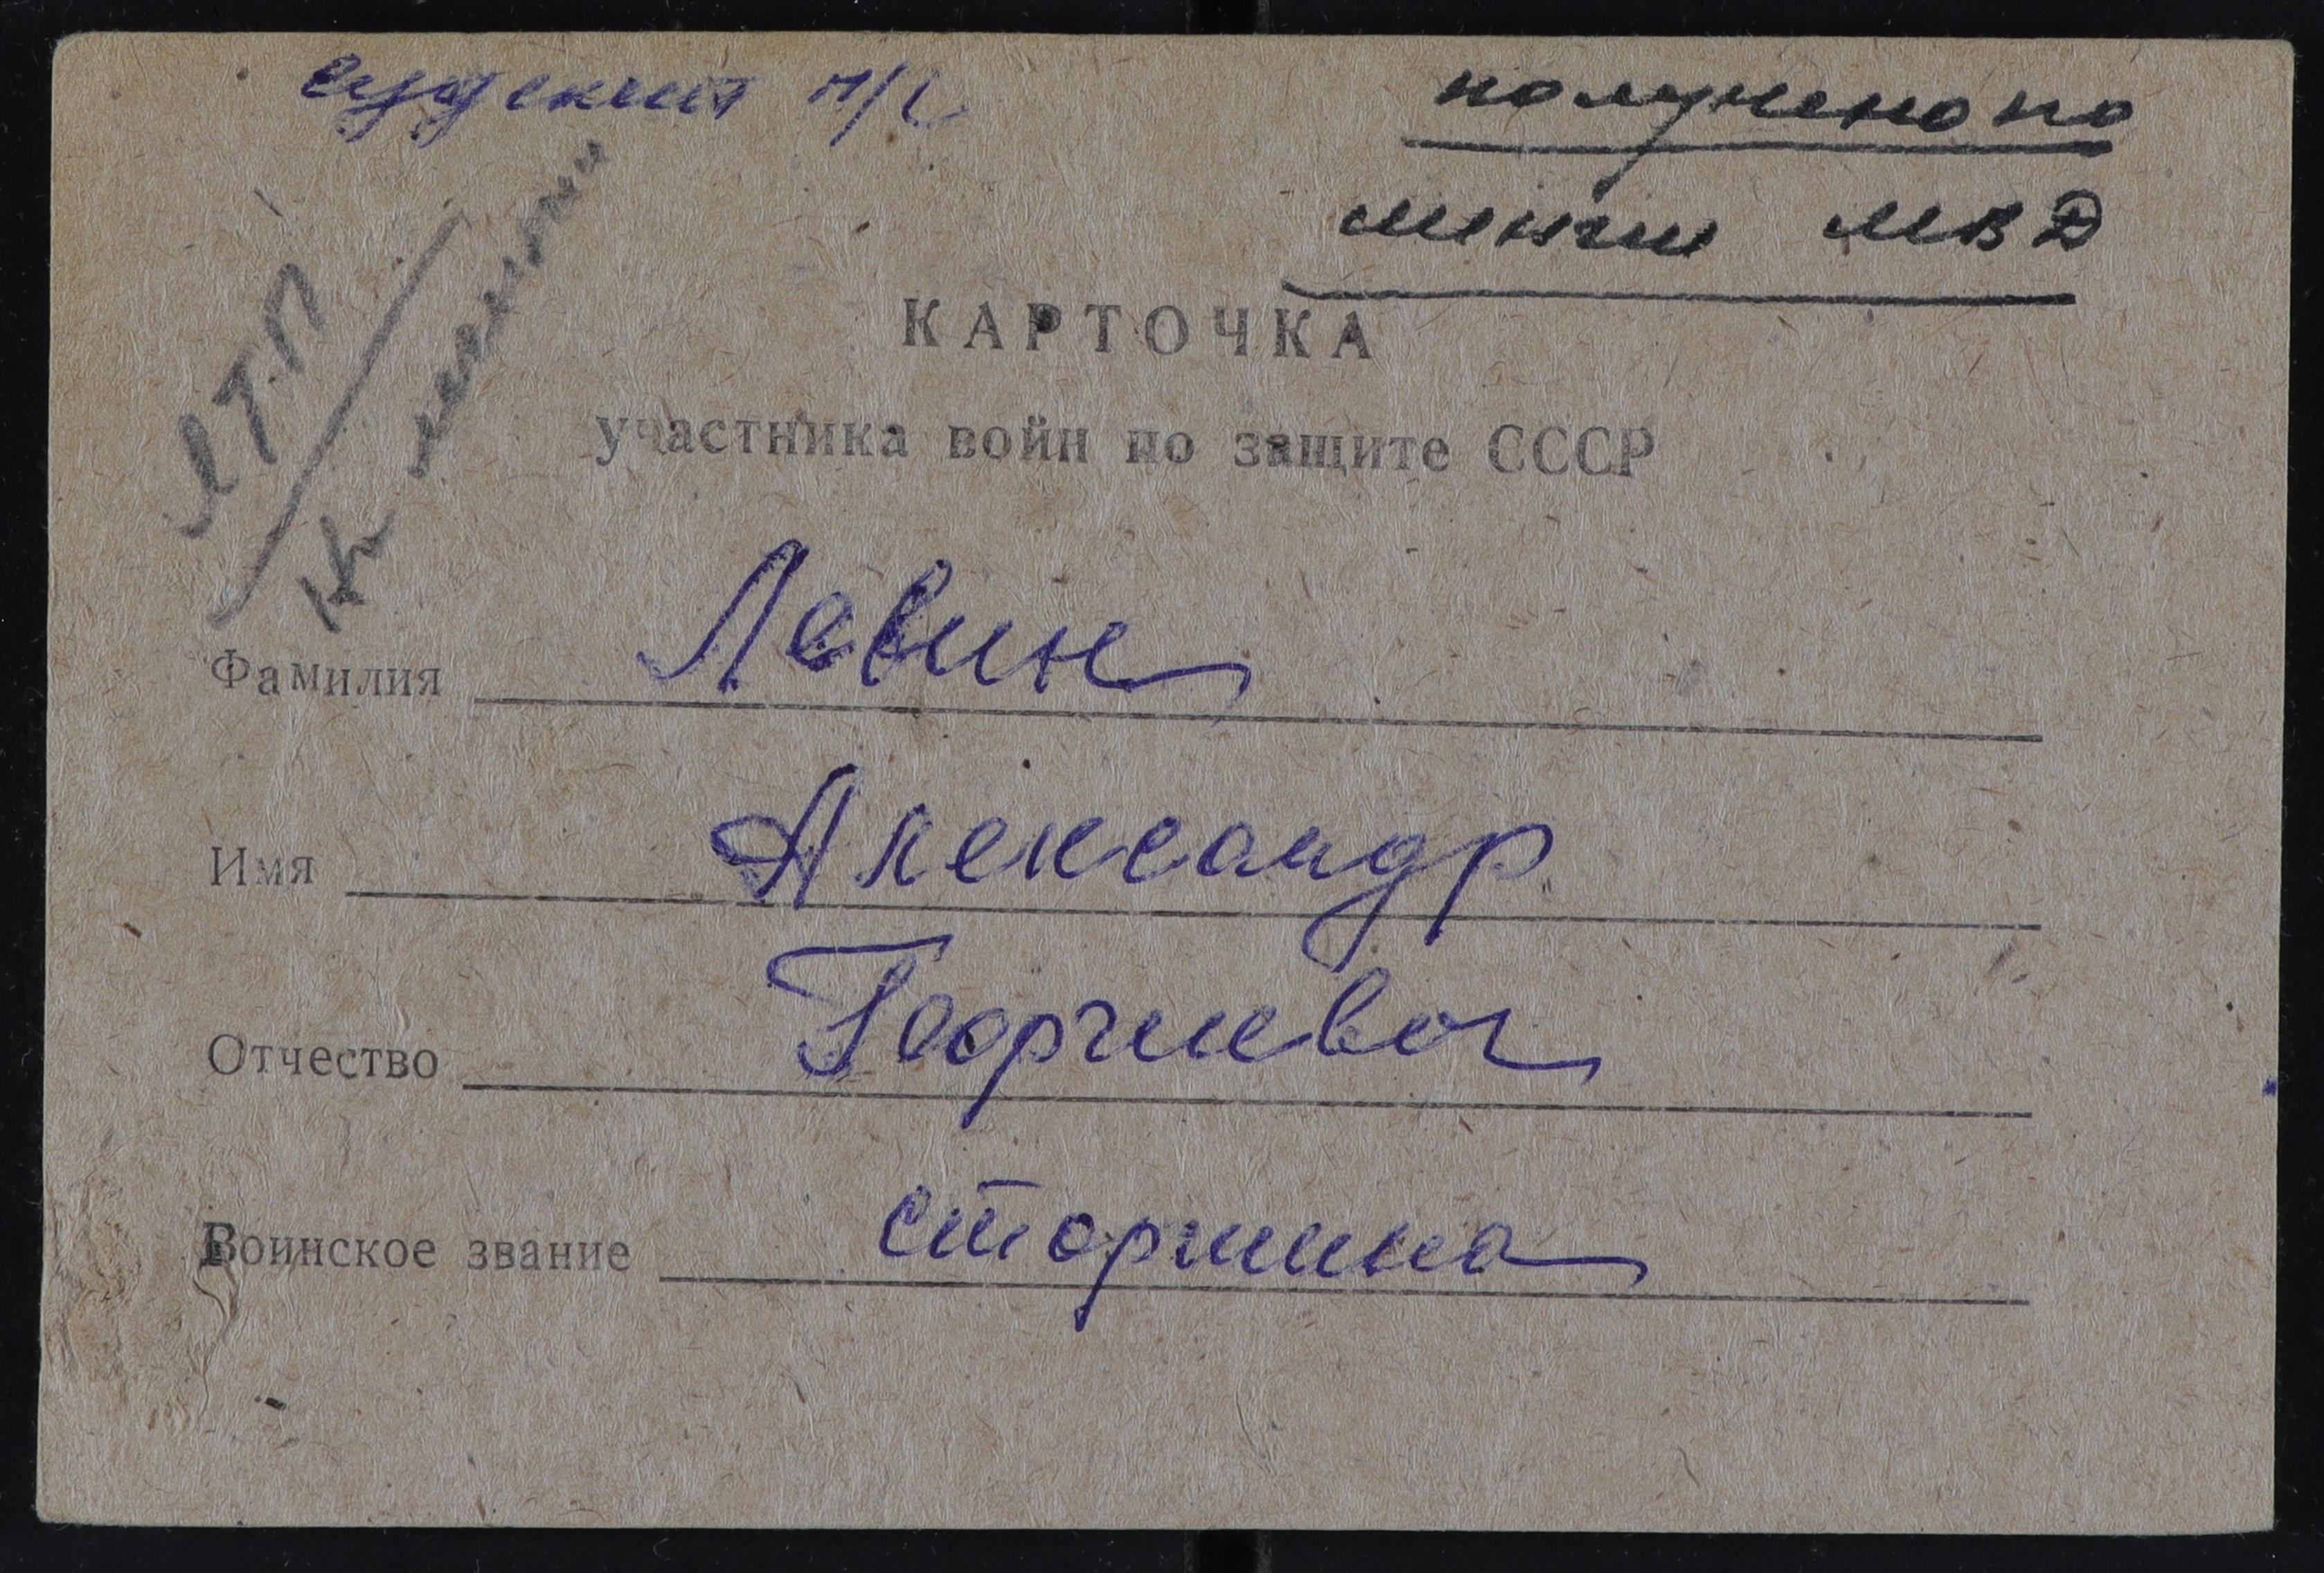 получено по
линии МВД
КАРТОЧКА
участника войн по защите СССР
Фамилия Левин
Имя Александр
Отчество Георгиевич
Воинское звание старшина